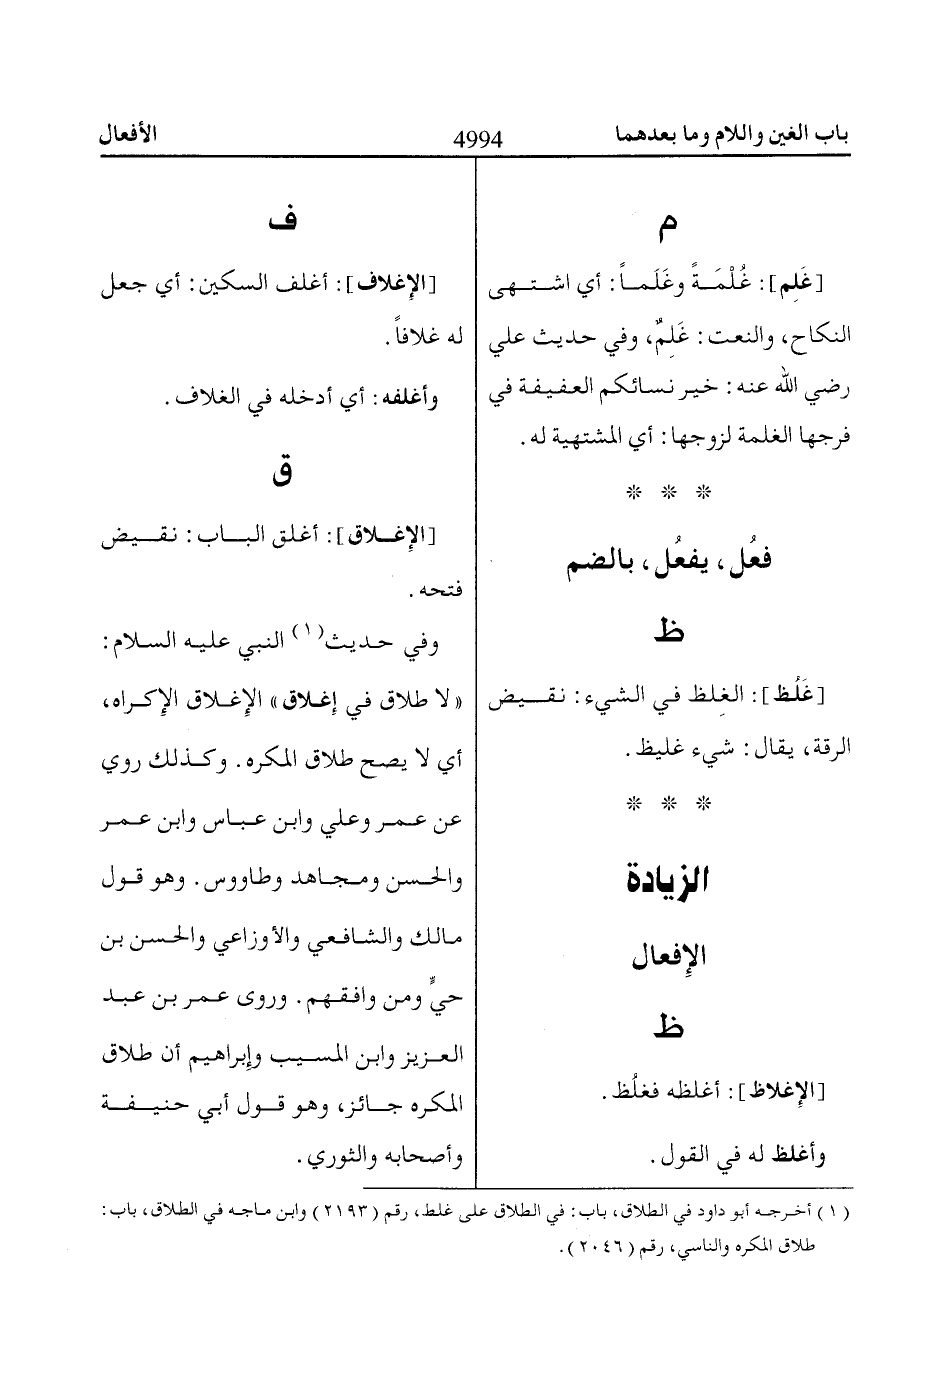 باب الغين واللام وما بعدهما
4994
الأفعال
م
[غَلِم]: غُلْمَـةً وغَلَمـاً: أي اشتـهى
النكاح، والنعت: غَلِمٌ، وفي حديث علي
رضي الله عنه: خير نسائكم العفيفة في
فرجها الغلمة لزوجها: أي المشتهية له.
* * *
فعُل، يفعُل، بالضم
ظ
[غَلُظ]: الغِلظ في الشيء: نقـيض
الرقة، يقال: شيء غليظ.
* * *
الزيادة
الإِفعال
ظ
[الإِغلاظ]: أغلظه فغلُظ.
وأغلظ له في القول.
ف
[الإِغلاف]: أغلف السكين: أي جعل
له غلافاً.
وأغلفه: أي أدخله في الغلاف.
ق
[الإِغـلاق]: أغلق البـاب: نقـيض
فتحه.
وفي حديث(١) النبي عليه السلام:
«لا طلاق في إِغلاق» الإِغلاق الإِكراه،
أي لا يصح طلاق المكره. وكذلك روي
عن عمر وعلي وابن عباس وابن عمر
والحسن ومجاهد وطاووس. وهو قول
مالك والشافعي والأوزاعي والحسن بن
حيٍّ ومن وافقهم. وروى عمر بن عبد
العزيز وابن المسيب وإِبراهيم أن طلاق
المكره جائز، وهو قول أبي حنيفة
وأصحابه والثوري.
(١) أخرجه أبو داود في الطلاق، باب: في الطلاق على غلط، رقم (٢١٩٣) وابن ماجه في الطلاق، باب:
طلاق المكره والناسي، رقم (٢٠٤٦).